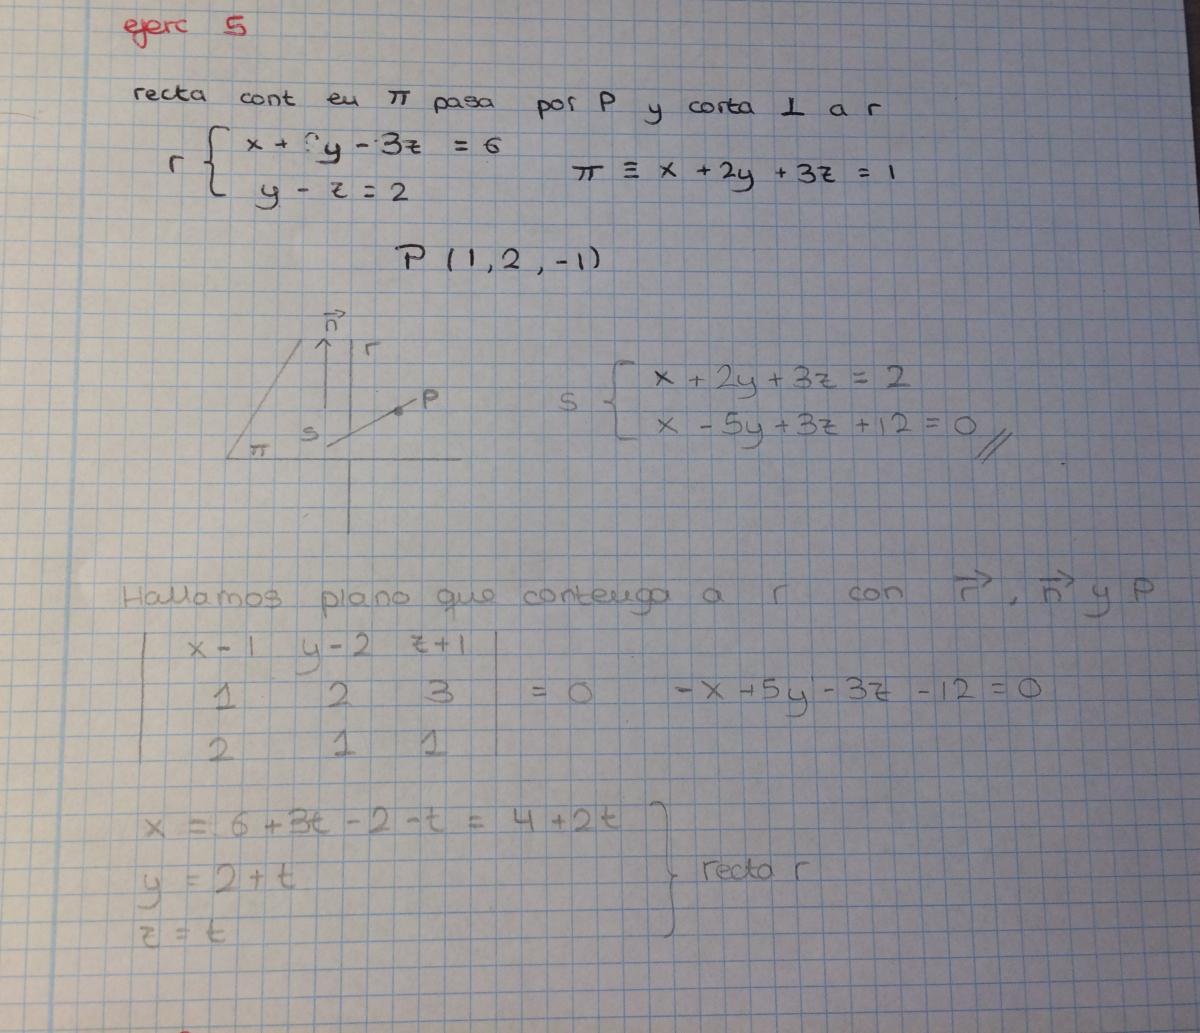 ejerc 5
recta cont en π pasa por P y corta ⊥ a r
r { x + y - 3z = 6
y - z = 2
π ≡ x + 2y + 3z = 1
P (1, 2, -1)
n⃗
r
P
s
π
s { x + 2y + 3z = 2
x - 5y + 3z + 12 = 0 //
Hallamos plano que contenga a r con r⃗, n⃗ y P
| x-1 y-2 z+1 |
| 1 2 3 | = 0 -x + 5y - 3z - 12 = 0
| 2 1 1 |
x = 6 + 3t - 2 - t = 4 + 2t
y = 2 + t
z = t
} recta r